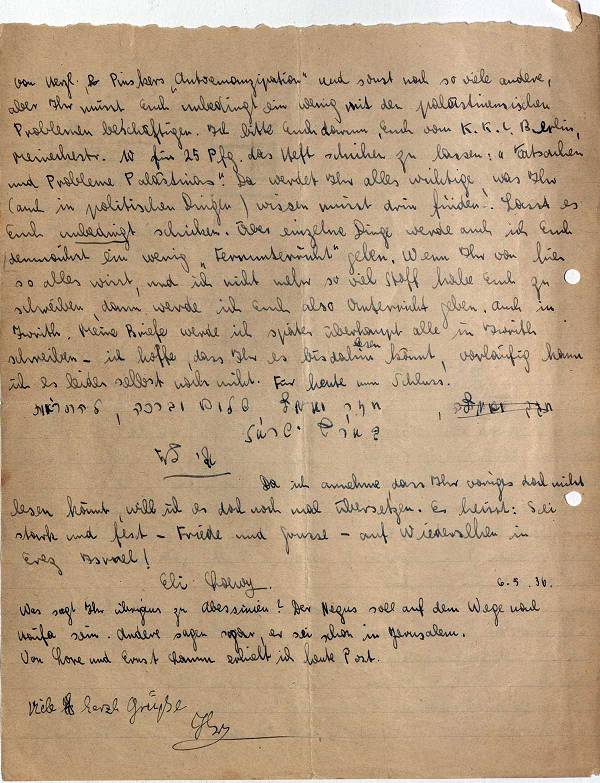 von Herzl. Pinskers „Autoemanzipation" und sonst noch so viele andere,
aber Ihr müsst Euch unbedingt ein wenig mit den palästinensischen
Problemen beschäftigen. Ich bitte Euch darum, Euch vom K.K.L. Berlin,
Meinekestr. 10 für 25 Pfg. das Heft schicken zu lassen: „Tatsachen
und Probleme Palästinas". Da werdet Ihr alles wichtige, was Ihr
(auch in politischen Dingen) wissen müsst drin finden. Lasst es
Euch unbedingt schicken. Über einzelne Dinge werde auch ich Euch
demnächst ein wenig „Fernunterricht" geben. Wenn Ihr von hier
so alles wisst, und ich nicht mehr so viel Stoff habe Euch zu
schreiben, dann werde ich Euch also Unterricht geben. Auch in
Iwrith. Meine Briefe werde ich später überhaupt alle in Iwrith
schreiben – ich hoffe, dass Ihr es bis dahin lesen könnt, vorläufig kann
ich es leider selbst noch nicht. Für heute nun Schluss.
חזק ואמץ, שלום וברכה, להתראות
בארץ ישראל
Da ich annehme, dass Ihr voriges doch nicht
lesen könnt, will ich es doch noch mal übersetzen. Es heisst: Sei
stark und fest – Friede und Grüsse – auf Wiedersehen in
Erez Israel!
Eli 6.5.36.
Was sagt Ihr übrigens zu Abessinien? Der Negus soll auf dem Wege nach
Haifa sein. Andere sagen sogar, er sei schon in Jerusalem.
Von Lore und Ernst erhielt ich heute Post.
Viele herzl Grüße